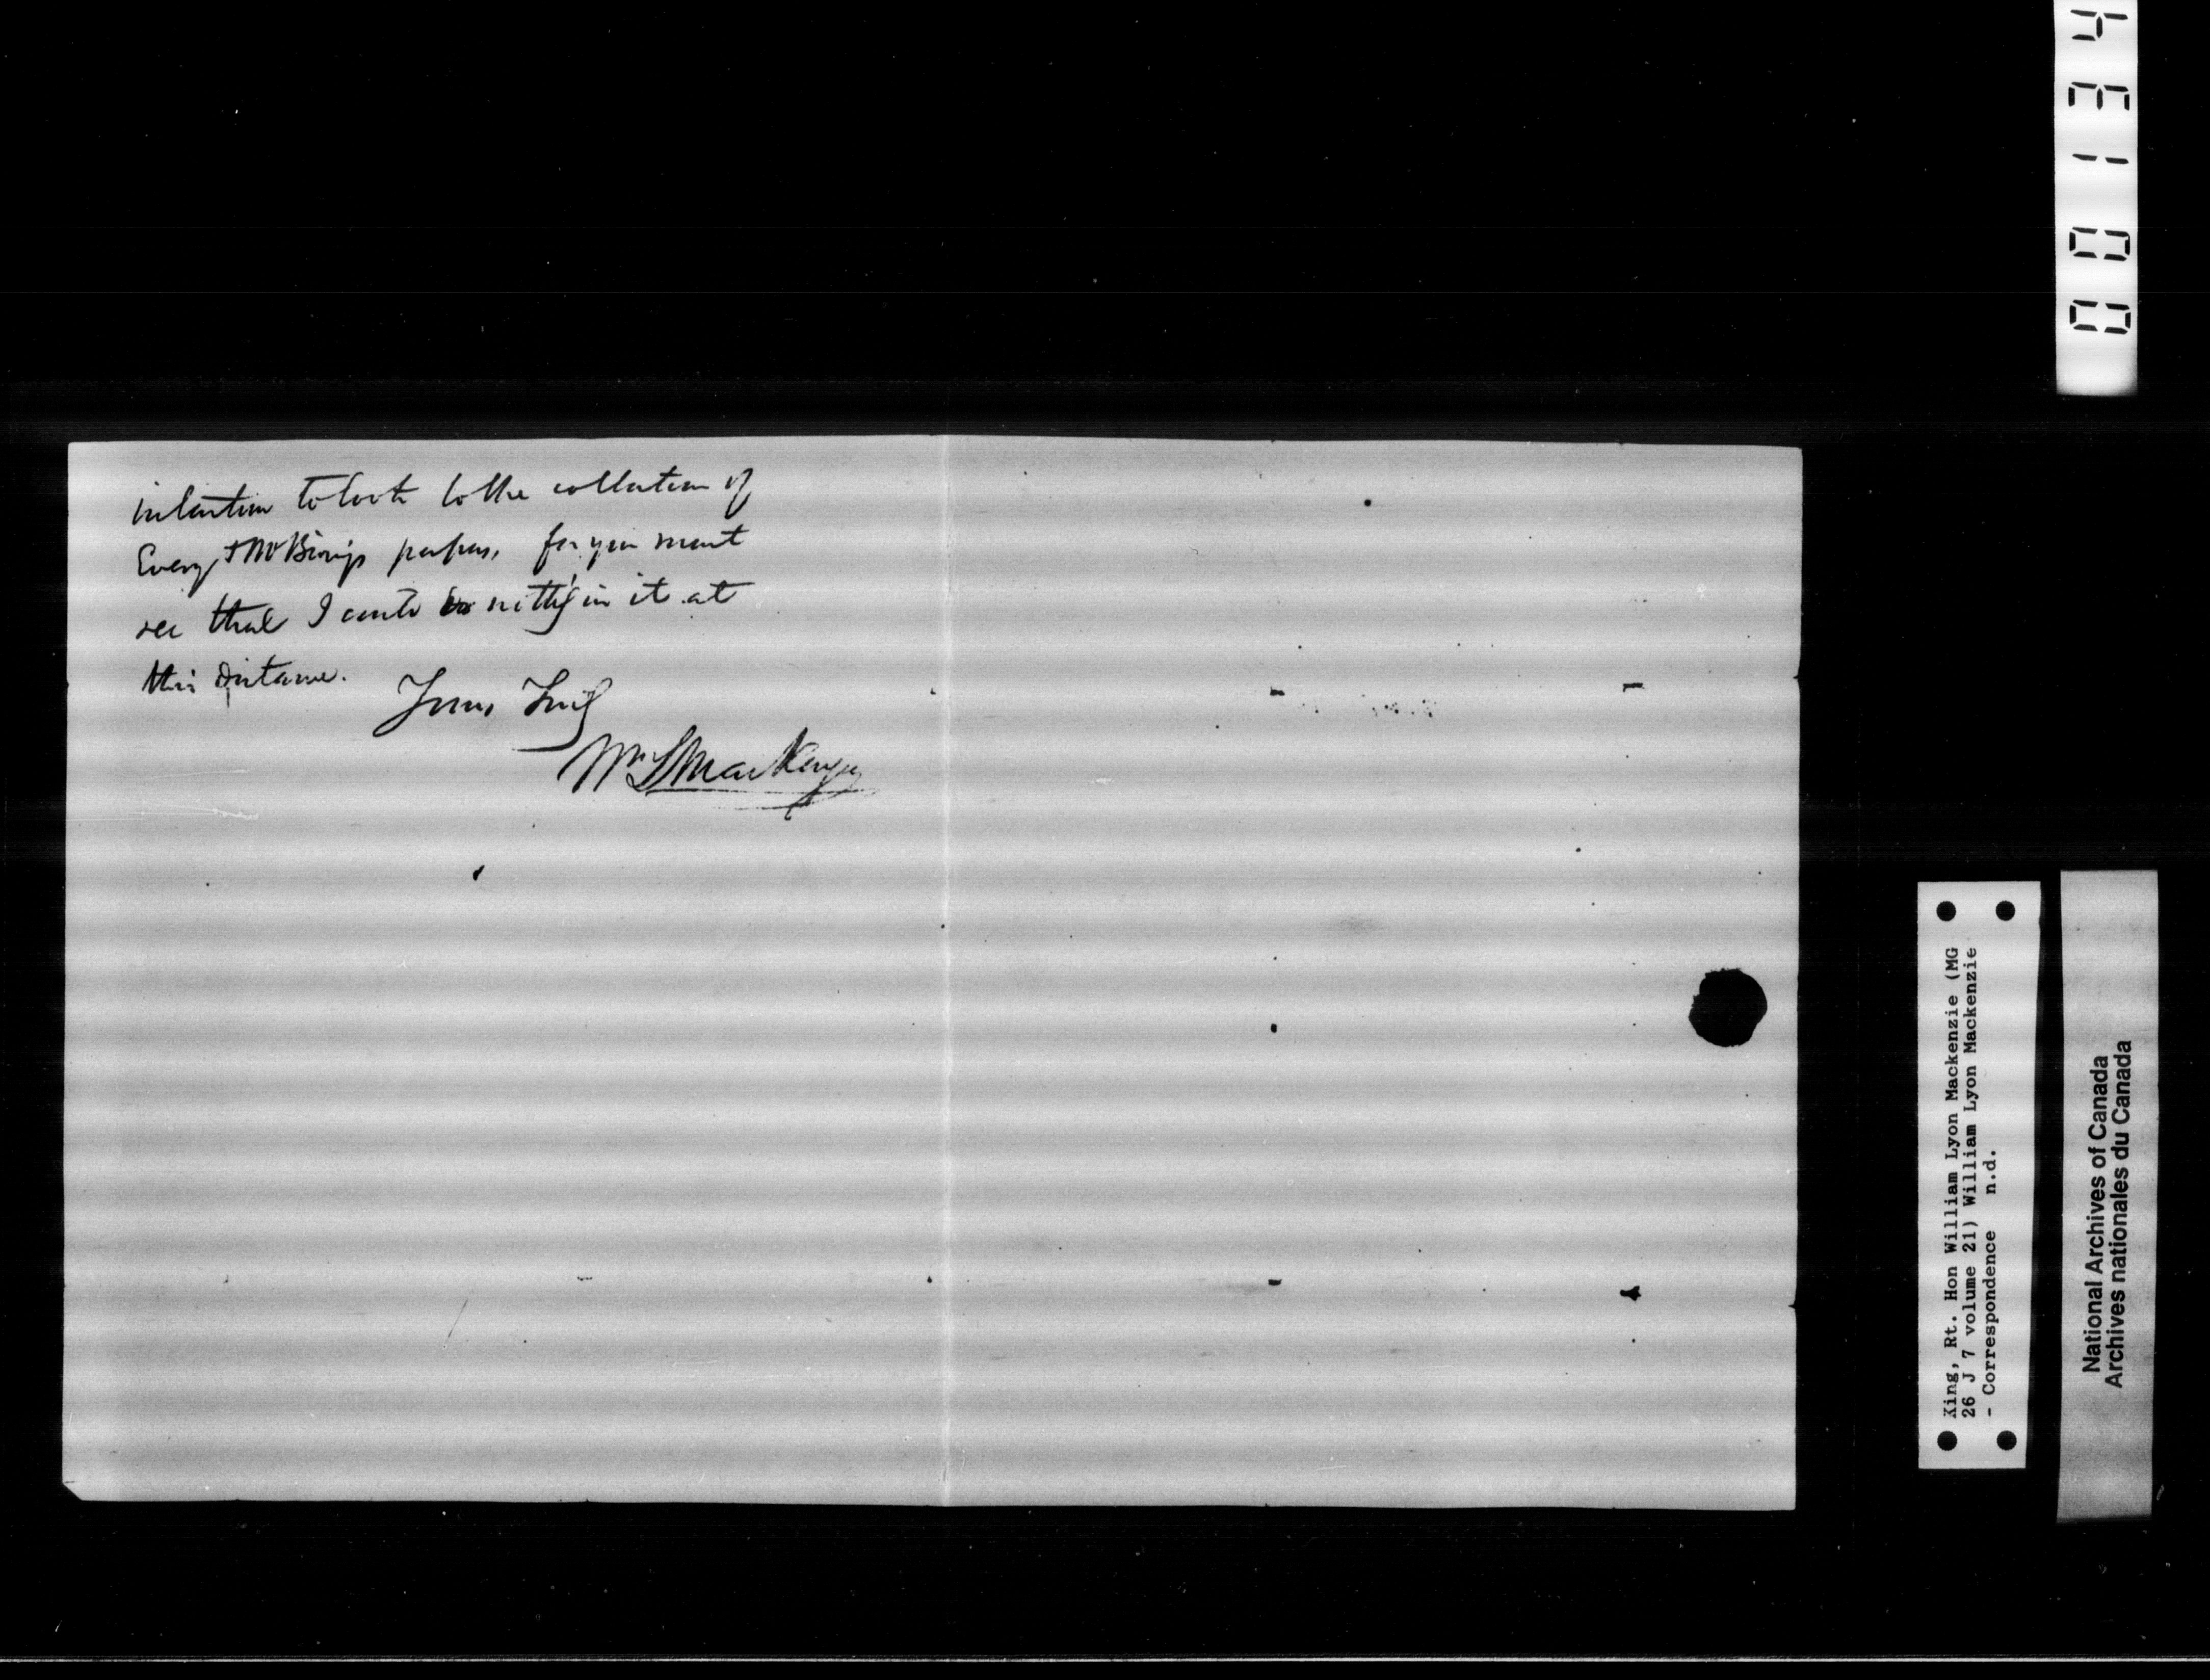 intention to look to the collection of
Every & Mr papers, for you must
see that I can do nothg in it at
this distance.
Yours Truly
Wm L Mackenzie
00134
King, Rt. Hon William Lyon Mackenzie (MG
26 J 7 volume 21) William Lyon Mackenzie
- Correspondence n.d.
National Archives of Canada
Archives nationales du Canada